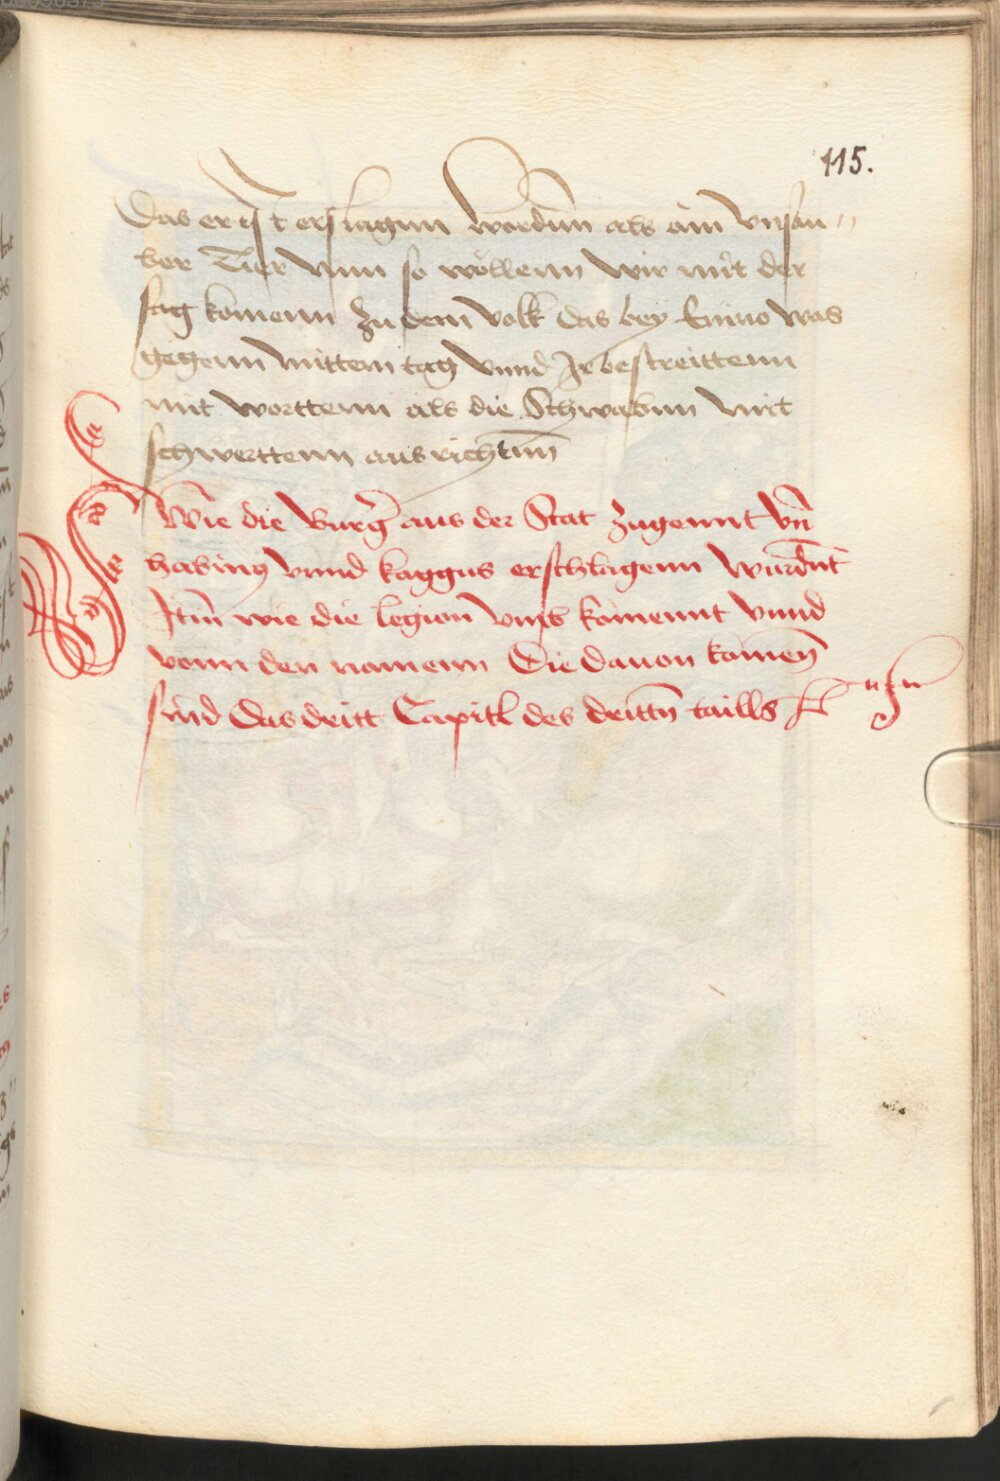 115.
Das er ist erslagnn wordnn als ain vnsau„
ber Tier Nun so wöllenn wir mit der
sag komenn zu dem volk das bey was
gegenn mittem tag vnnd Jr bestreittenn
mit worttenn als die Schwabnn mit
schwerttenn ausrichtnn
Wie die Burg̃ aus der Stat zugennt vñ
habing vnnd kaggus erschlagenn wurdnt
Jtm̃ wie die legion vmb komennt vnnd
vonn den namenn Die dauon komen̄
sind Das dritt Capitl des drittn̄ taills